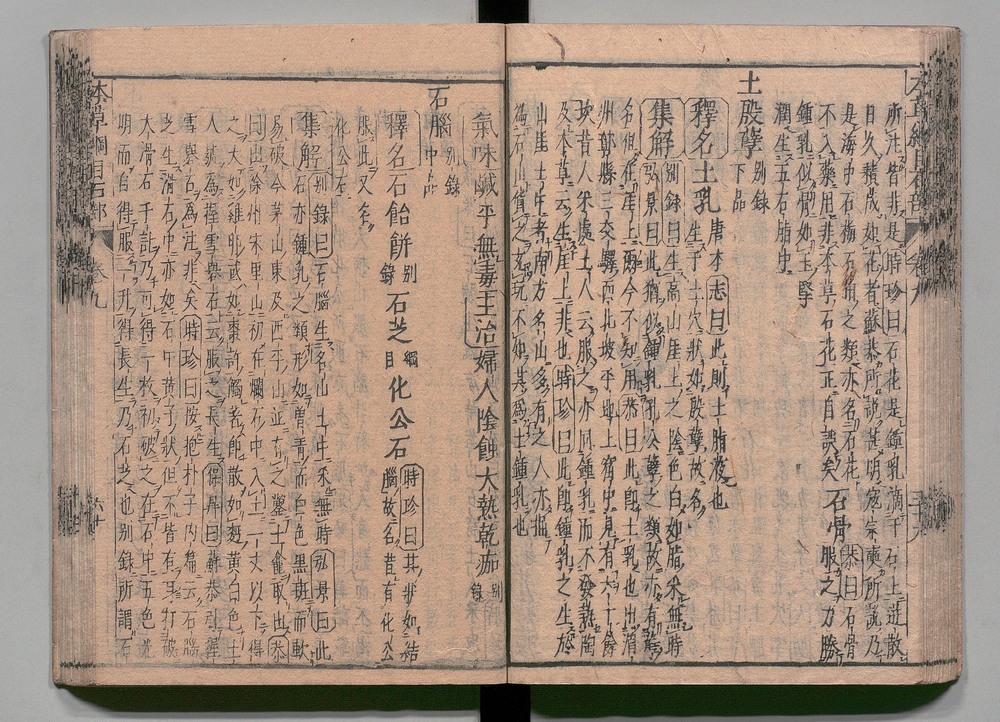 本草綱目石部 卷九
所注皆非是時珍曰石花是鍾乳滴于石上迸散
日久積成如花者蘇恭所說甚明寇宗奭所說乃
是海中石梅石柏之類亦名石花
不入藥用非本草石花正自誤矣石骨恭曰石骨服之力勝
鍾乳似骨如玉堅
潤生五石脂中
土殷孽別錄下品
釋名土乳唐本志曰此則土脂液也
生于土穴狀如殷孽故名
集解別錄曰生高山崖上之陰色白如脂采無時
弘景曰此猶似鍾乳孔公孽之類故亦有孽
名但在崖上爾今不知用恭曰此即土乳也出渭
州鄣縣三交驛西北坡平地上窟中見有六十餘
坎昔人采處土人云服之亦同鍾乳而不發熱陶
及本草云生崖上非也時珍曰此即鍾乳之生於
山崖土中者南方名山多有之人亦掘
為石山貨之充玩不知其為土鍾乳也
氣味鹹平無毒主治婦人陰蝕大熱乾痂別錄
石腦別錄中品
釋名石飴餅別錄石芝綱目化公石時珍曰其狀如結
腦故名昔有化公
服此又名
化公石
集解別錄曰石腦生名山土中采無時弘景曰此
石亦鍾乳之類形如曾青而白色黑斑而軟
易破今茅山東及西平山並有之鑿土龕取出恭
曰出徐州宋里山初在爛石中入土一丈以下得
之大如雞卵或如棗許觸著即散如麪黃白色土
人號為握雪礜石云服之長生保昇曰蘇恭引握
雪礜石為注非矣時珍曰按抱朴子內篇云石腦
芝生滑石中亦如石中黃子狀但不皆有耳打破
大滑石千許乃可得一枚初破之在石中五色光
明而自得服一升得長生乃石芝也別錄所謂石
本草綱目石部 卷九 六十